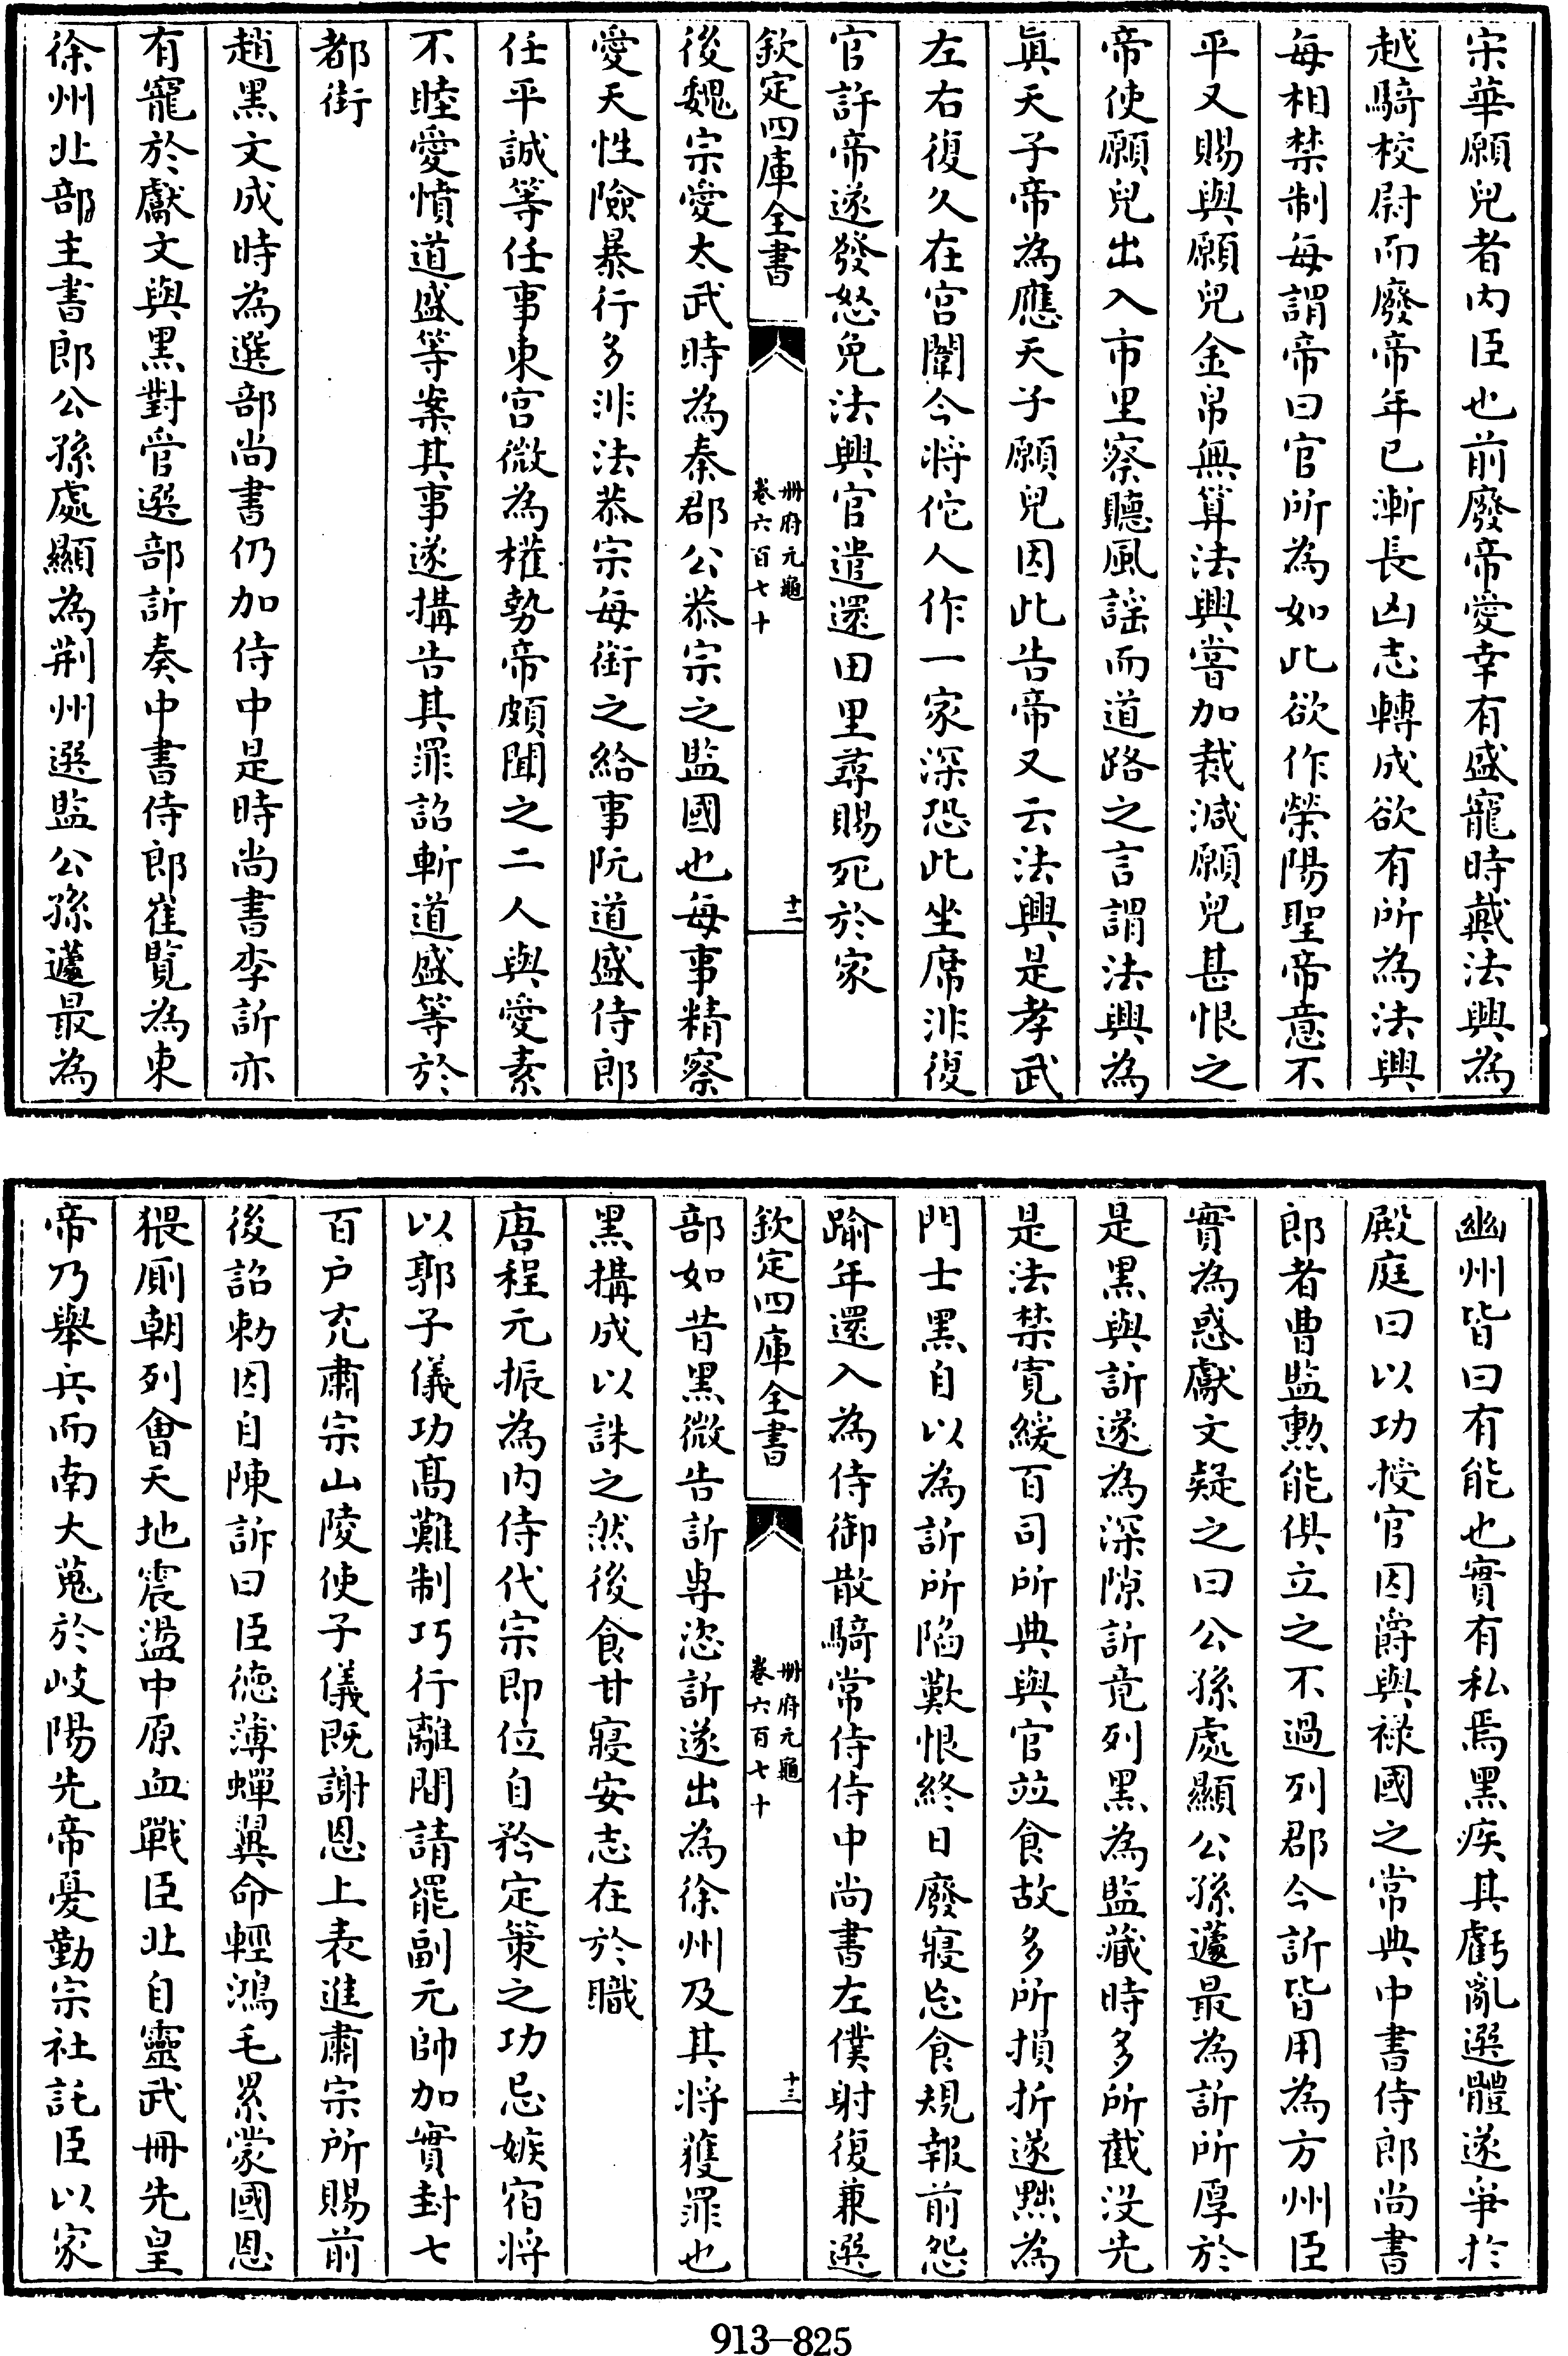 宋華願兒者内臣也前廢帝愛幸有盛寵時戴法興為
越騎校尉而廢帝年已漸長凶志轉成欲有所為法興
每相禁制每謂帝曰官所為如此欲作榮陽聖帝意不
平又賜與願兒金帛無算法興嘗加裁減願兒甚恨之
帝使願兒出入市里察聽風謡而道路之言謂法興為
眞天子帝為應天子願兒因此告帝又云法興是孝武
左右復久在宫闈今将佗人作一家深恐此坐席非復
官許帝遂發怒免法興官遣還田里尋賜死於家
欽定四庫全書
冊府元龜
卷六百七十
十二
後魏宗愛太武時為秦郡公恭宗之監國也每事精察
愛天性險暴行多非法恭宗每銜之給事阮道盛侍郎
任平誠等任事東宫微為權勢帝頗聞之二人與愛素
不睦愛憤道盛等案其事遂搆告其罪詔斬道盛等於
都街
趙黑文成時為選部尚書仍加侍中是時尚書李訢亦
有寵於獻文與黑對管選部訢奏中書侍郎崔覽為東
徐州北部主書郎公孫處顯為荆州選監公孫蘧最為
幽州皆曰有能也實有私焉黑疾其虧亂選體遂爭於
殿庭曰以功授官因爵與禄國之常典中書侍郎尚書
郎者曹監勲能俱立之不過列郡今訢皆用為方州臣
實為惑獻文疑之曰公孫處顯公孫蘧最為訢所厚於
是黑與訢遂為深隙訢竟列黑為監藏時多所截没先
是法禁寛緩百司所典與官竝食故多所損折遂黜為
門士黑自以為訢所陷歎恨終日廢寢忘食規報前怨
踰年還入為侍御散騎常侍侍中尚書左僕射復兼選
欽定四庫全書
冊府元龜
卷六百七十
十三
部如昔黑微告訢専恣訢遂出為徐州及其将獲罪也
黑搆成以誅之然後食甘寢安志在於職
唐程元振為内侍代宗即位自矜定策之功忌嫉宿将
以郭子儀功髙難制巧行離間請罷副元帥加實封七
百户充肅宗山陵使子儀既謝恩上表進肅宗所賜前
後詔勅因自陳訴曰臣徳薄蟬翼命輕鴻毛累蒙國恩
猥厠朝列㑹天地震盪中原血戰臣北自靈武冊先皇
帝乃舉兵而南大蒐於岐陽先帝憂勤宗社託臣以家
913-825